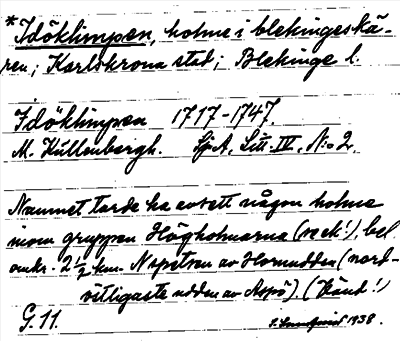 *Idöklimpen, holme i blekingeskä-
ren; Karlskrona stad; Blekinge l.
Idöklimpen 1717-1747.
M. Kullenbergh. SjA, Litt. IV, N:o 2.
Namnet torde ha avsett någon holme
inom gruppen Högholmarna (se ek!), bel.
omkr. 2 1/2 km N spetsen av Hornudden (nord-
västligaste udden av Aspö) (Känd!)
G. 11. 1938.